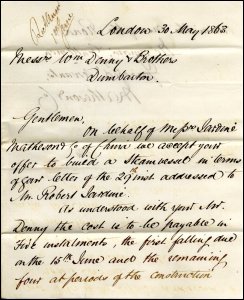 London 30 May 1863.
Messrs Wm Denny & Brothers
Dumbarton
Gentlemen,
On behalf of Messrs Jardine
Matheson & Co of China we accept your
offer to build a Steam vessel in terms
of your letter of the 29th inst addressed to
Mr Robert Jardine
it is understood with your Mr
Denny the cost is to be payable in
Five instalments, the first falling due
on the 15th June and the remaining
four at periods of the construction